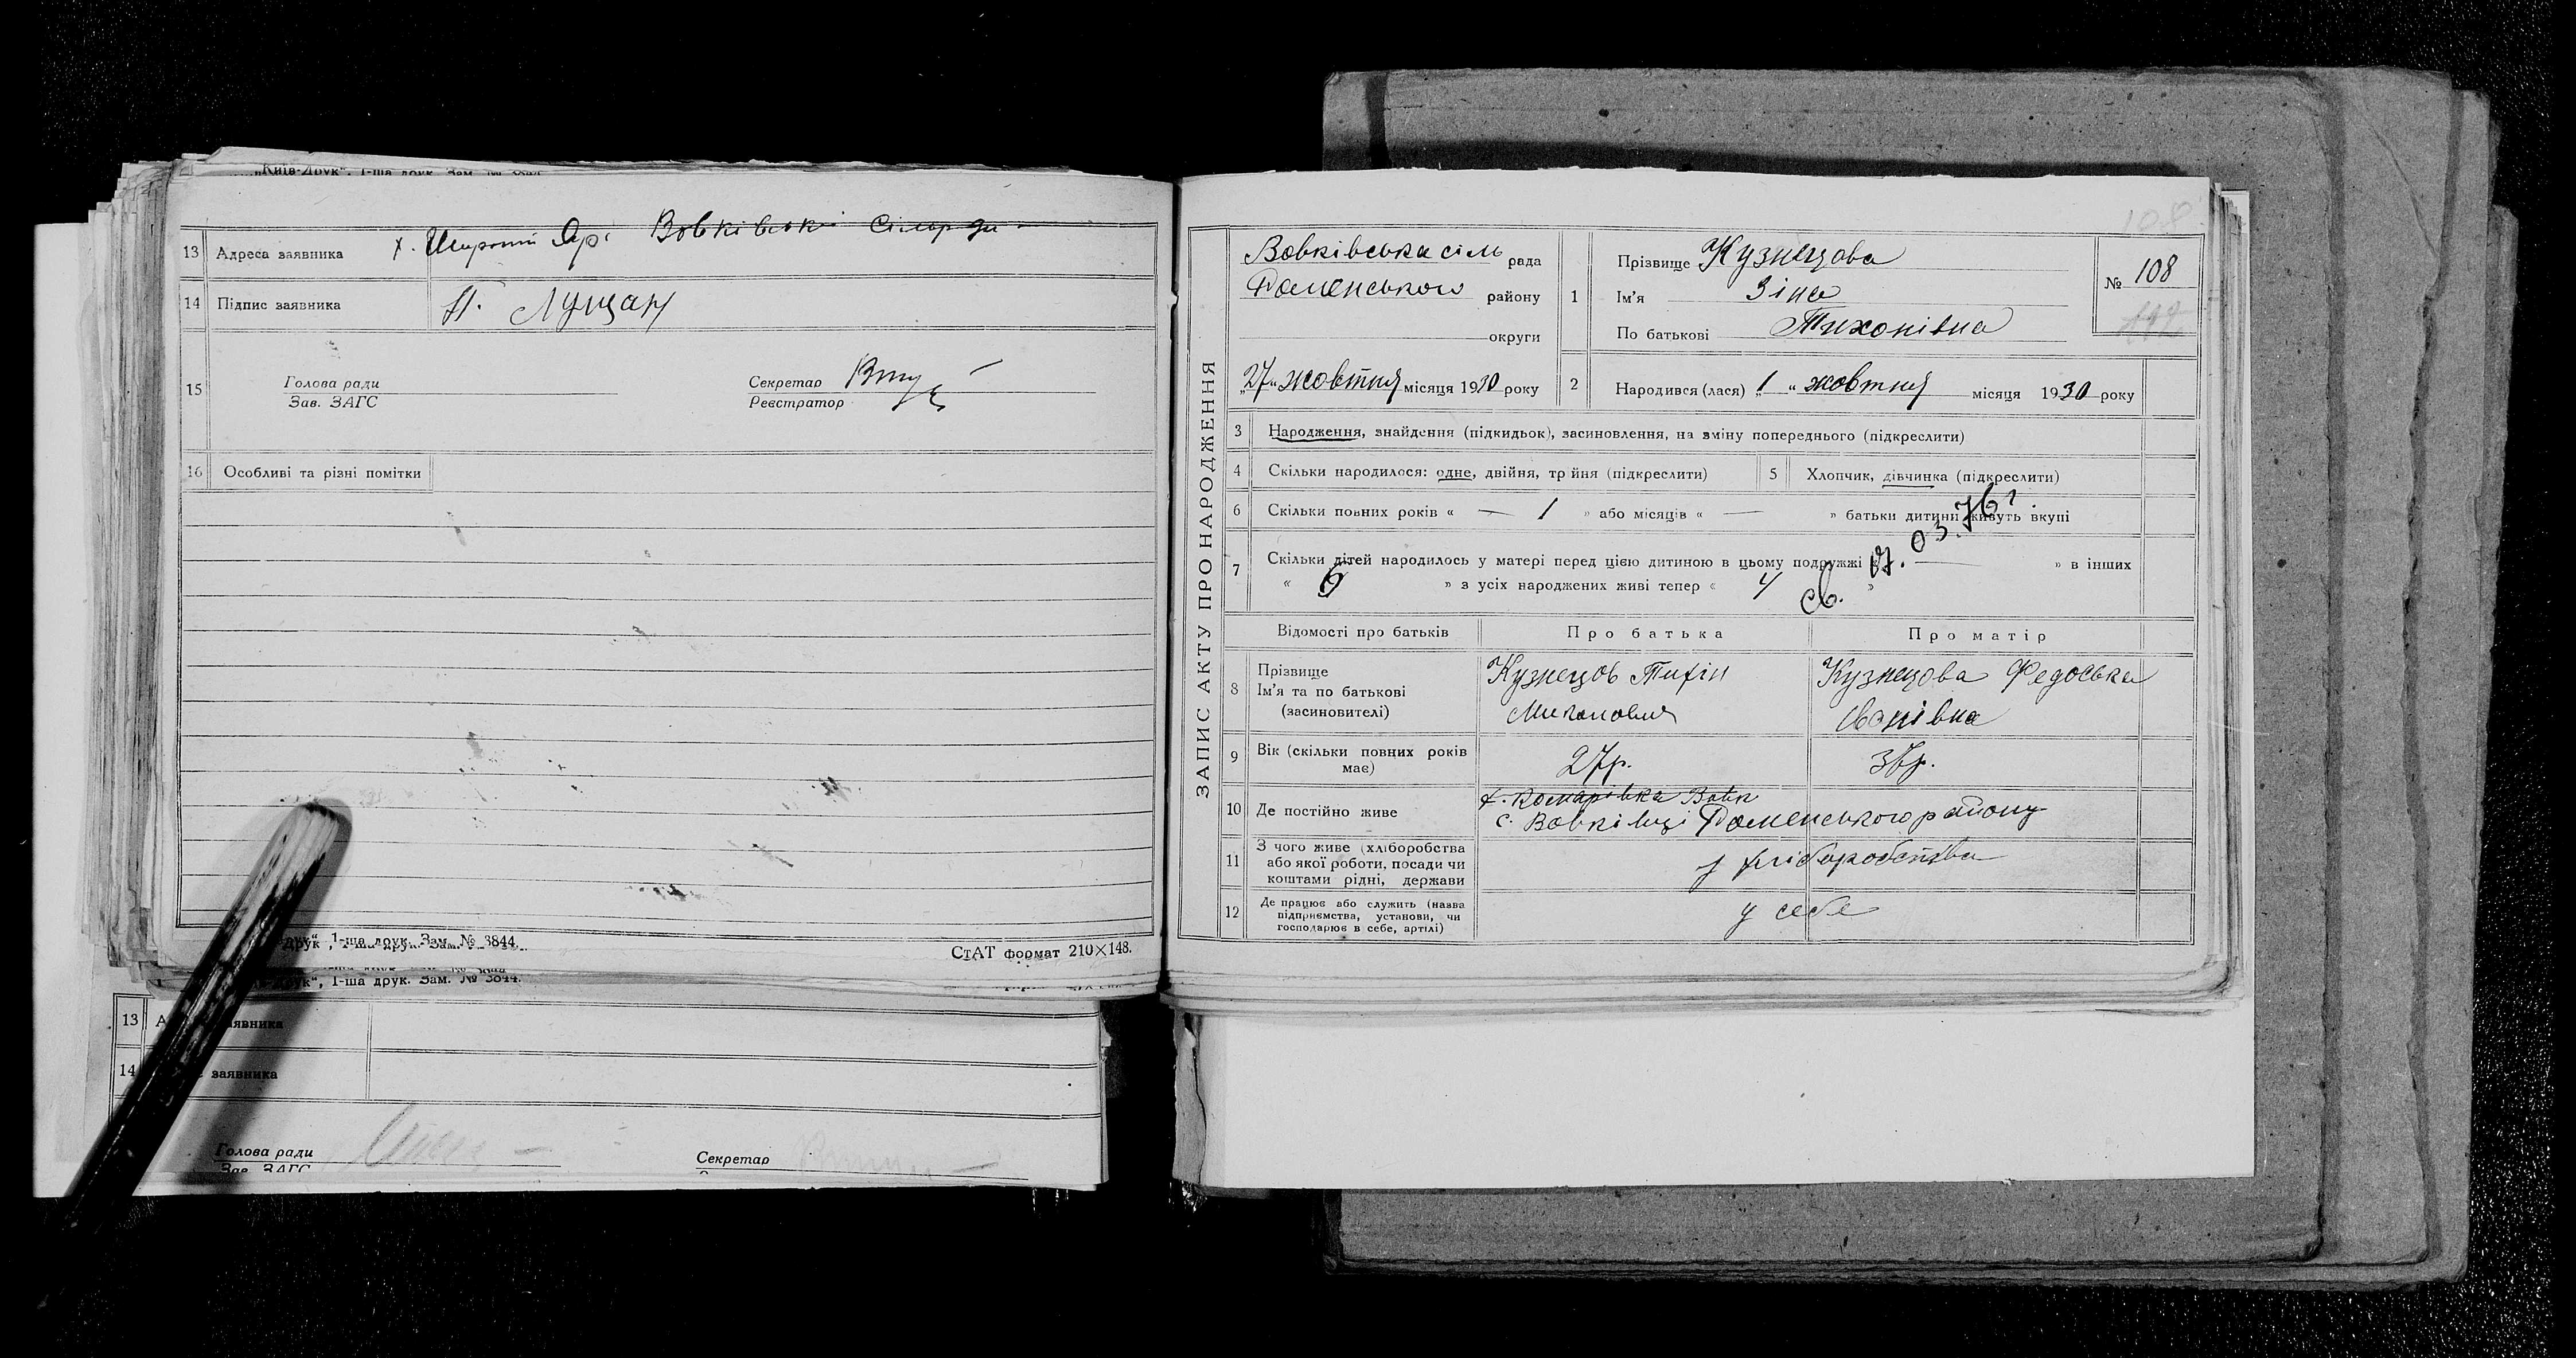 13 Адреса заявника х. Широкий Яр. Вовківської Сільради
14 Підпис заявника П. Лущан
15 Голова ради
Зав. ЗАГС
Секретар
Реєстратор
16 Особливі та різні помітки
1-ша друк. Зам. № 3844.
СтАТ формат 210×148.
1-ша друк. Зам. № 3844.
13 заявника
14 заявника
Голова ради
Зав. ЗАГС
Секретар
ЗАПИС АКТУ ПРО НАРОДЖЕННЯ
Вовківська сіль рада
Роменського району
округи
„27“ жовтня місяця 1930 року
1 Прізвище Кузнецова
Ім'я Зіна
По батькові Тихонівна
№ 108
2 Народився (лася) „1“ жовтня місяця 1930 року
3 Народження, знайдення (підкидьок), засиновлення, на зміну попереднього (підкреслити)
4 Скільки народилося: одне, двійня, трійня (підкреслити)
5 Хлопчик, дівчинка (підкреслити)
6 Скільки повних років « — 1 » або місяців « — » батьки дитини живуть вкупі
7 Скільки дітей народилось у матері перед цією дитиною в цьому подружжі « — » в інших
« 6 » з усіх народжених живі тепер « 4 »
св. 03.76
Відомості про батьків
Про батька
Про матір
8 Прізвище
Ім'я та по батькові
(засиновителі)
Кузнецов Тихін
Кузнецова Федоська
Іванівна
9 Вік (скільки повних років
має)
27р.
36р.
10 Де постійно живе
х. Комарівка Вовк
с. Вовківці Роменського району
11 З чого живе (хліборобства
або якої роботи, посади чи
коштами рідні, держави
з хліборобства
12 Де працює або служить (назва
підприємства, установи, чи
господарює в себе, артілі)
у себе